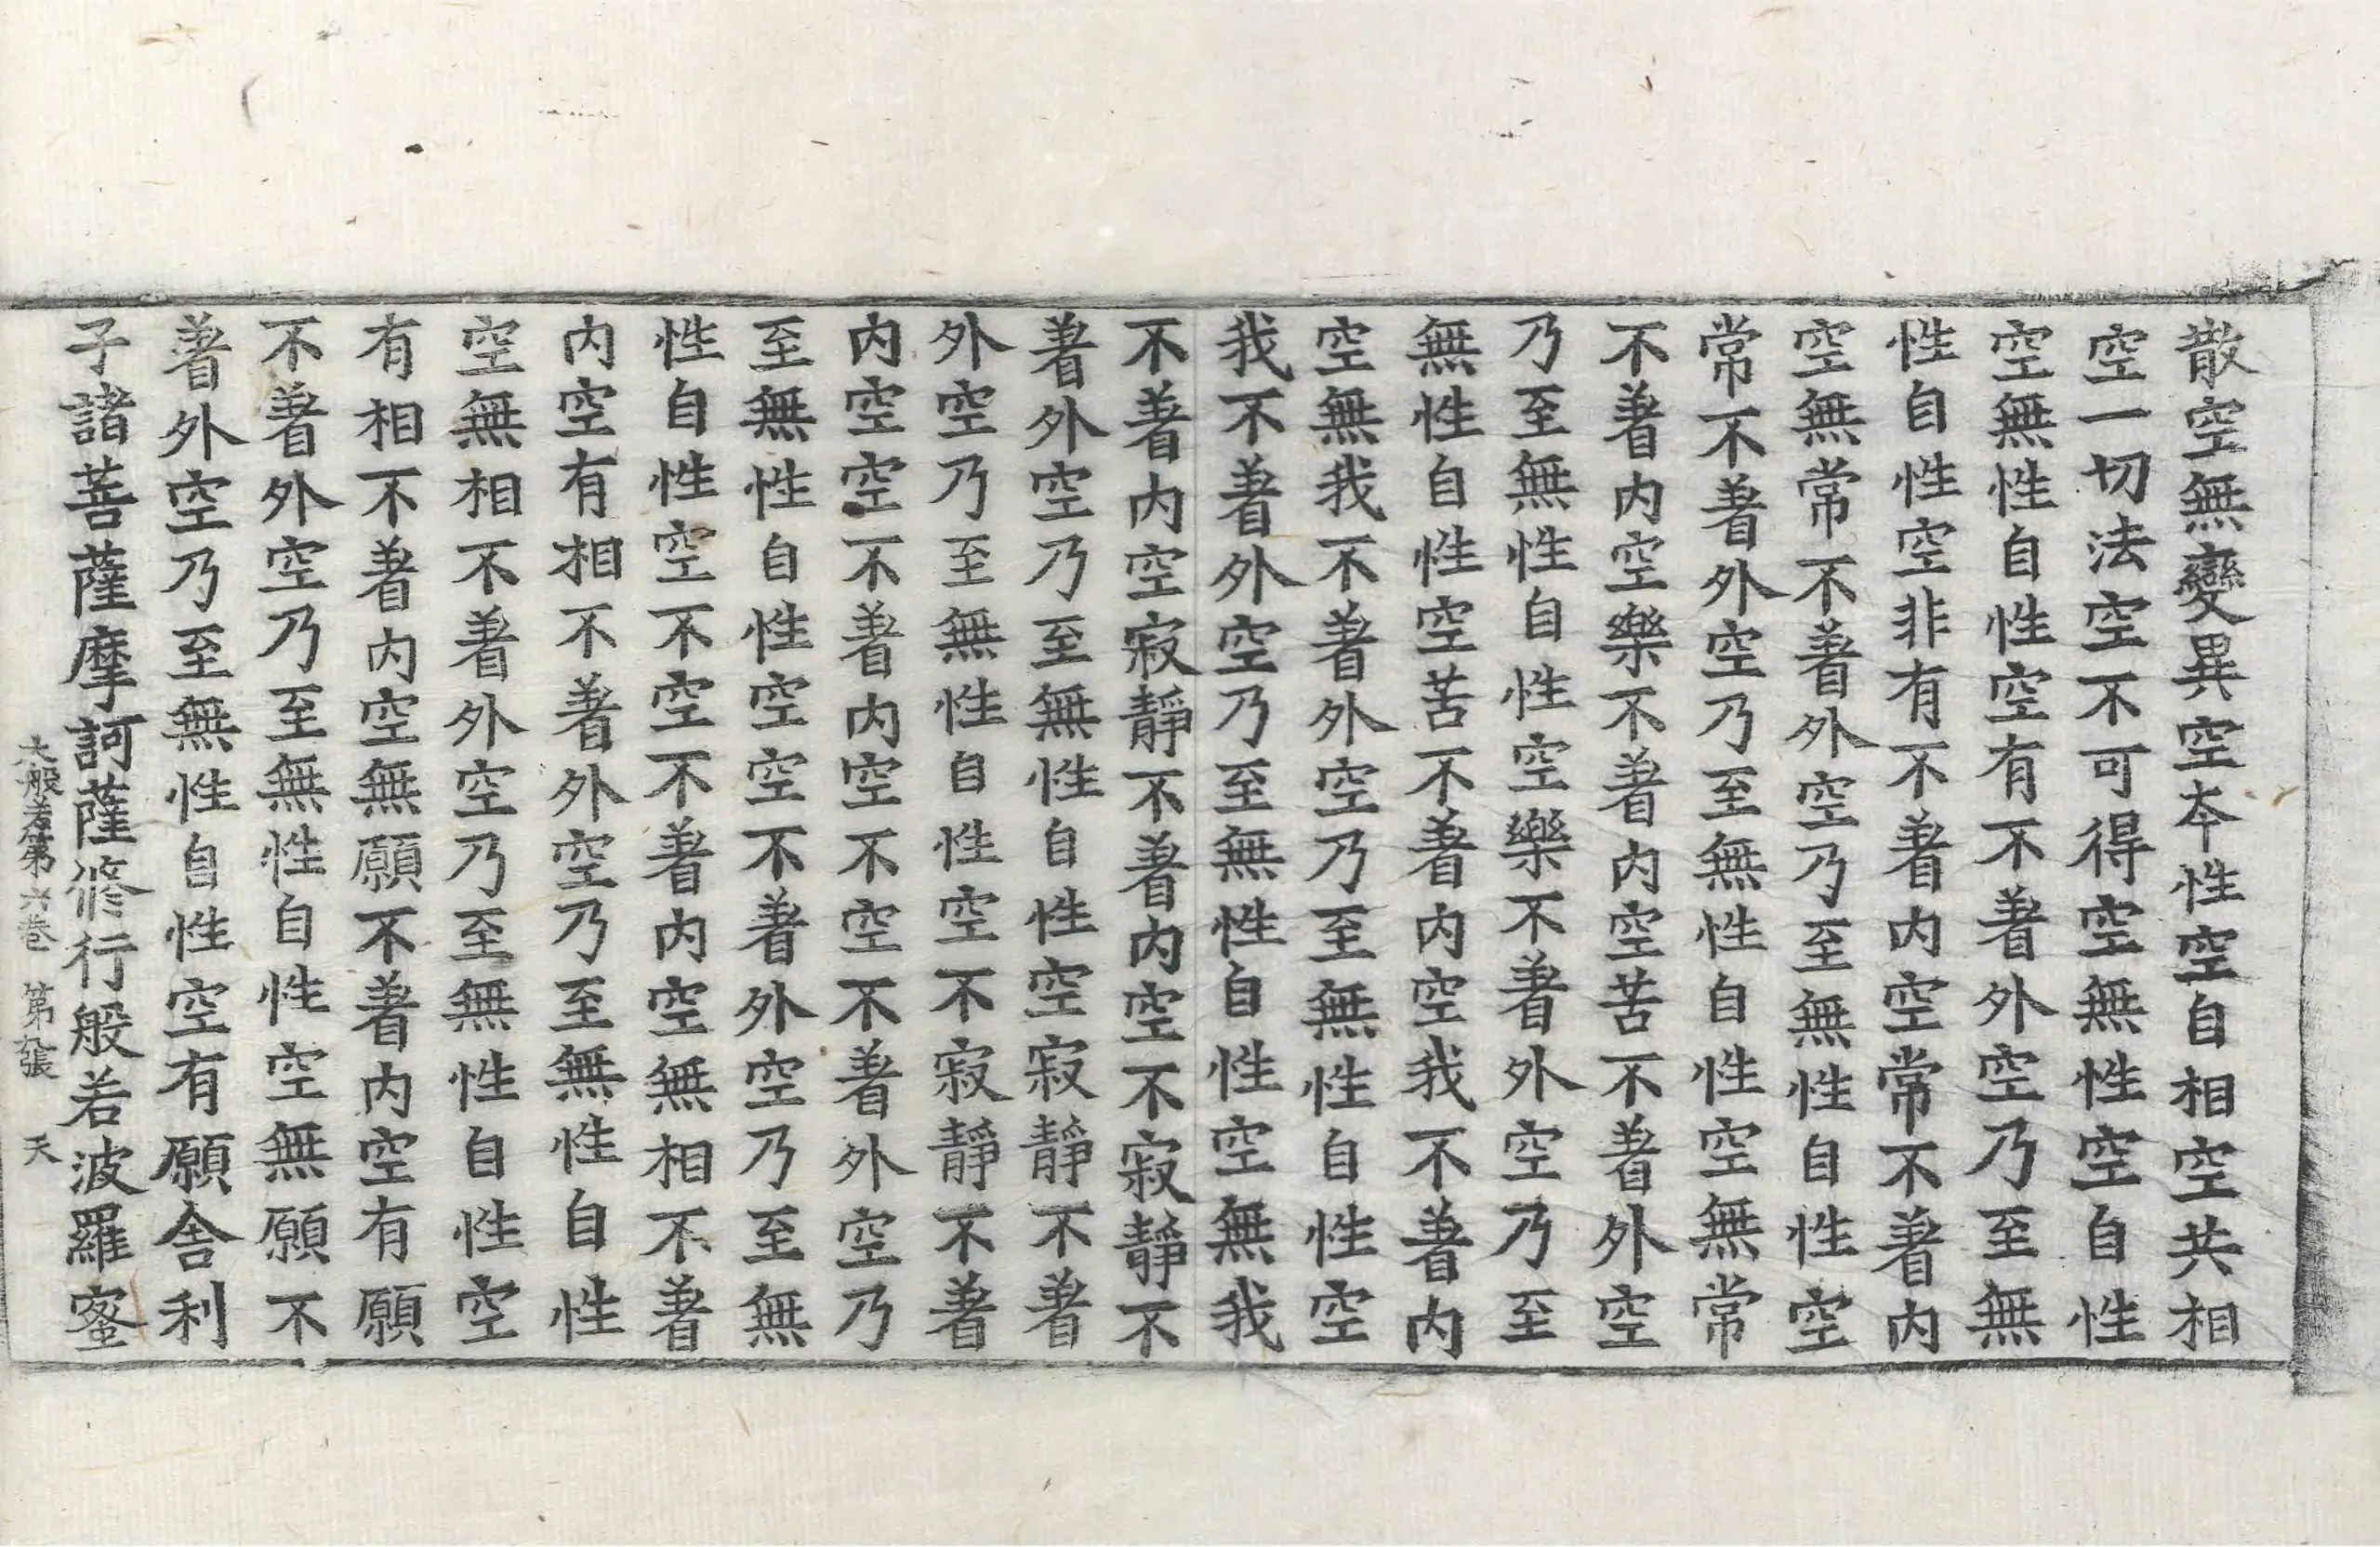 散空無變異空夲性空自相空共相
空一切法空不可得空無性空自性
空無性自性空有不著外空乃至無
性自性空非有不著内空常不著内
空無常不著外空乃至無性自性空
常不著外空乃至無性自性空無常
不著内空樂不著内空苦不著外空
乃至無性自性空樂不著外空乃至
無性自性空苦不著内空我不著内
空無我不著外空乃至無性自性空
我不著外空乃至無性自性空無我
不著内空寂靜不著内空不寂靜不
著外空乃至無性自性空寂靜不著
外空乃至無性自性空不寂靜不著
内空空不著内空不空不著外空乃
至無性自性空空不著外空乃至無
性自性空不空不著内空無相不著
内空有相不著外空乃至無性自性
空無相不著外空乃至無性自性空
有相不著内空無願不著内空有願
不著外空乃至無性自性空無願不
著外空乃至無性自性空有願舍利
子諸菩薩摩訶薩修行般若波羅蜜
大般若第六卷 第九張 天